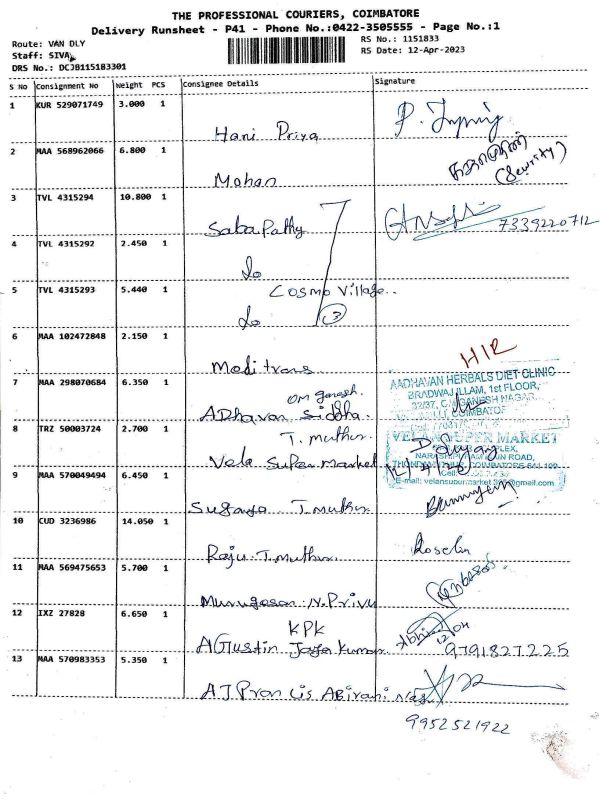 THE PROFESSIONAL COURIERS, COIMBATORE
Delivery Runsheet - P41 - Phone No.:0422-3505555 - Page No.:1
Route: VAN DLY
RS No.: 1151833
Staff: SIVA
RS Date: 12-Apr-2023
DRS No.: DCJB115183301
S No Consignment No Weight PCS Consignee Details Signature
1 KUR 529071749 3.000 1
Hari Priya
2 MAA 568962066 6.800 1
(Security)
Mohan
3 TVL 4315294 10.800 1
Saba Pathy 7339220712
4 TVL 4315292 2.450 1
do
5 TVL 4315293 5.440 1
Cosmo Village..
do 3
6 MAA 102472848 2.150 1
Meditrans
H/R
7 MAA 298070684 6.350 1
AADHAVAN HERBALS DIET CLINIC
BRADWAJ ILLAM, 1st FLOOR,
32/37, C. GANESH NAGAR,
COIMBATOR
OM ganesh.
ADhavan Siddha.
8 TRZ 50003724 2.700 1
T. muthur
Vela Super market
SUPER MARKET
ROAD,
COIMBATORE-641 109
9 MAA 570049494 6.450 1
Sugaya T.muthur
10 CUD 3236986 14.050 1
Raju. T.muthur. Roselin
11 MAA 569475653 5.700 1
Murugasan. N.Privu
12 IXZ 27828 6.650 1
KPK
AGustin Jaya Kumar 9791827225
13 MAA 570983353 5.350 1
9952521922